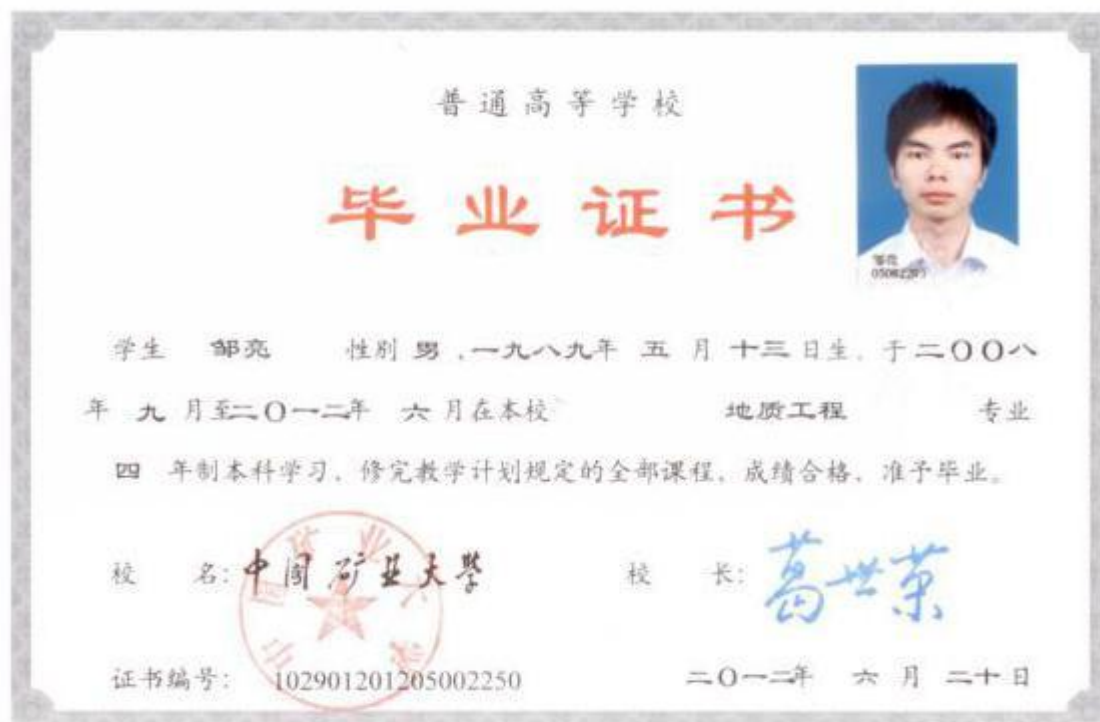 普通高等学校
毕业证书
邹亮
05082205
学生 邹亮 性别 男，一九八九年 五 月 十三 日生，于二〇〇八
年 九 月至二〇一二年 六 月在本校 地质工程 专业
四 年制本科学习，修完教学计划规定的全部课程，成绩合格，准予毕业。
校 名：中国矿业大学 校 长：葛世荣
中国矿业大学
证书编号： 102901201205002250 二〇一二年 六 月 二十日